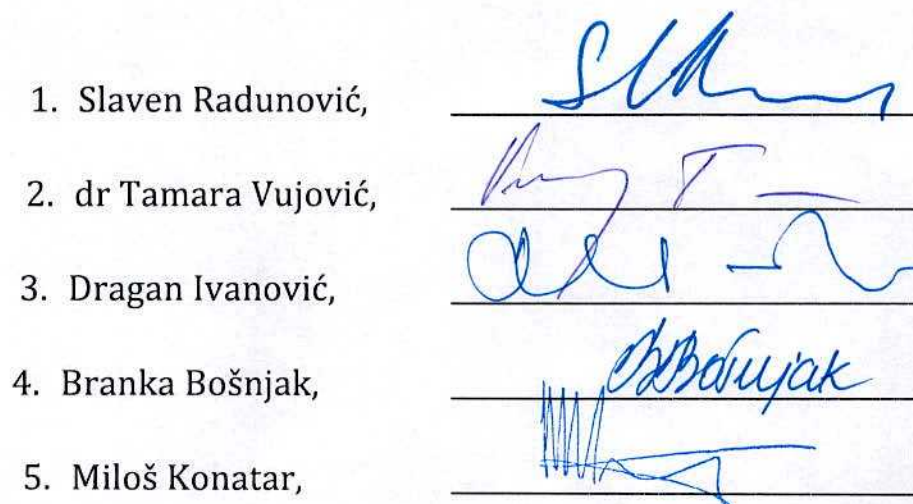 1. Slaven Radunović,
2. dr Tamara Vujović,
3. Dragan Ivanović,
4. Branka Bošnjak, BBošnjak
5. Miloš Konatar,